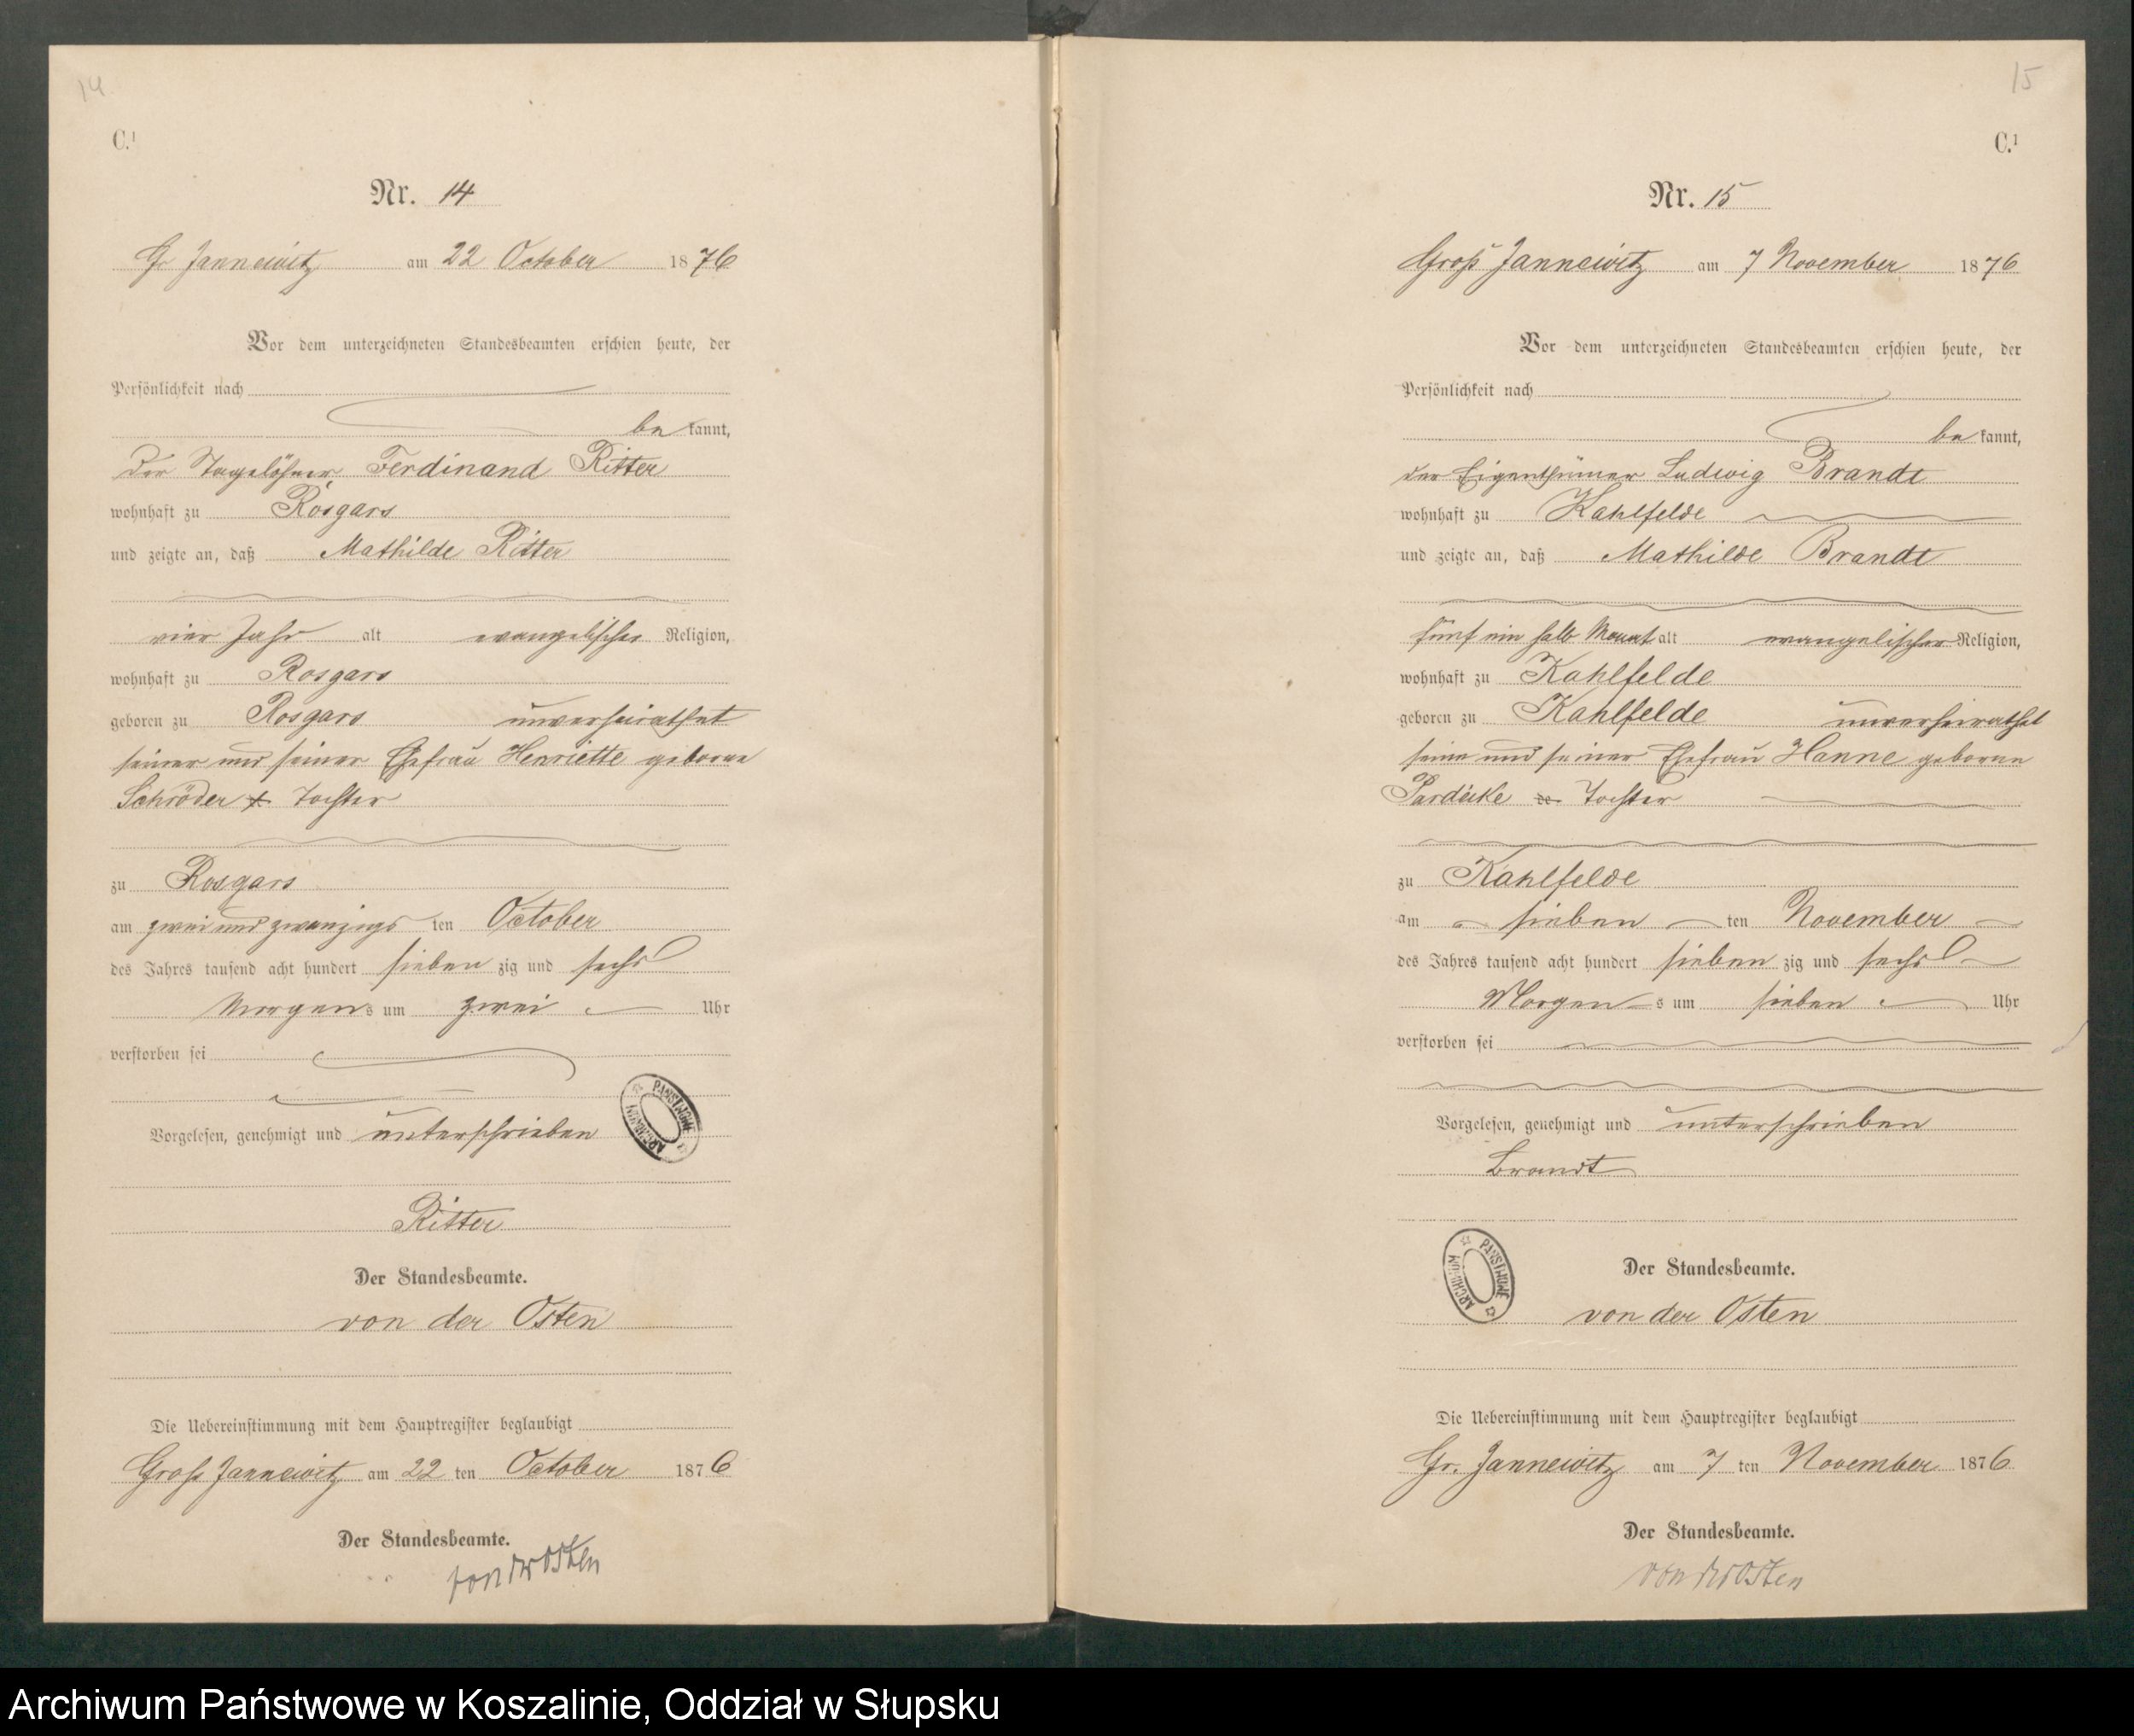 14
C.1
Nr. 14
Gr Jannewitz am 22 October 1876
Vor dem unterzeichneten Standesbeamten erschien heute, der
Persönlichkeit nach
be kannt,
der Tagelöhner Ferdinand Ritter
wohnhaft zu Rosgars
und zeigte an, daß Mathilde Ritter
vier Jahr alt evangelischer Religion,
wohnhaft zu Rosgars
geboren zu Rosgars unverheirathet
seiner und seiner Ehefrau Henriette geborne
Schröder Tochter
zu Rosgars
am zwei und zwanzigs ten October
des Jahres tausend acht hundert sieben zig und sechs
Morgens um zwei Uhr
verstorben sei
Vorgelesen, genehmigt und unterschrieben
Ritter
Der Standesbeamte.
von der Osten
Die Uebereinstimmung mit dem Hauptregister beglaubigt
Groß Jannewitz am 22 ten October 1876
Der Standesbeamte.
von der Osten
PAŃSTWOWE ARCHIWUM
15
C.1
Nr. 15
Groß Jannewitz am 7 November 1876
Vor dem unterzeichneten Standesbeamten erschien heute, der
Persönlichkeit nach
be kannt,
der Eigenthümer Ludwig Brandt
wohnhaft zu Kahlfelde
und zeigte an, daß Mathilde Brandt
fünf ein halb Monat alt evangelischer Religion,
wohnhaft zu Kahlfelde
geboren zu Kahlfelde unverheirathet
seine und seiner Ehefrau Hanne geborne
Pardeike Tochter
zu Kahlfelde
am sieben ten November
des Jahres tausend acht hundert sieben zig und sechs
Morgens um sieben Uhr
verstorben sei
Vorgelesen, genehmigt und unterschrieben
Brandt
Der Standesbeamte.
von der Osten
PAŃSTWOWE ARCHIWUM
Die Uebereinstimmung mit dem Hauptregister beglaubigt
Gr. Jannewitz am 7 ten November 1876
Der Standesbeamte.
von der Osten
Archiwum Państwowe w Koszalinie, Oddział w Słupsku